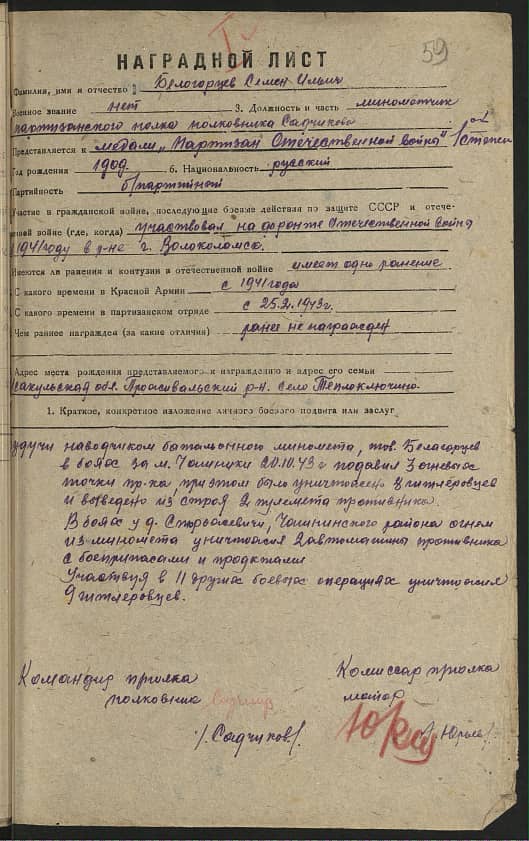 59
НАГРАДНОЙ ЛИСТ
Фамилия, имя и отчество Белогорцев Семен Ильич
Военное звание нет 3. Должность и часть минометчик
партизанского полка полковника Садчикова
Представляется к медали „Партизан Отечественной войны" I степени
Год рождения 6. Национальность русский
Партийность б/партийный
Участие в гражданской войне, последующие боевые действия по защите СССР и отече-
венной войне (где, когда) участвовал на фронте Отечественной войны
1941 году в р-не г. Волоколамск.
Имеются ли ранения и контузии в отечественной войне имеет одно ранение
С какого времени в Красной Армии с 1941 года
С какого времени в партизанском отряде с 25.2.1943 г.
Чем раннее награжден (за какие отличия) ранее не награжден
Адрес места рождения представляемого к награждению и адрес его семьи
обл. р-н. село
1. Краткое, конкретное изложение личного боевого подвига или заслуг
удучи наводчиком батальонного миномета, тов. Белагорцев
в боях за м. Чашники 20.10.43 г подавил 3 огневых
точки пр-ка, при этом было уничтожено гитлеровцев
и выведено из строя 2 пулемета противника.
В боях у д. Чашнинского района огнем
из миномета уничтожил 2 автомашины противника
с боеприпасами и продктами
Участвуя в 11 других боевых операциях уничтожил
9 гитлеровцев.
Командир полка
полковник
/.Садчиков/.
Комиссар полка
майор